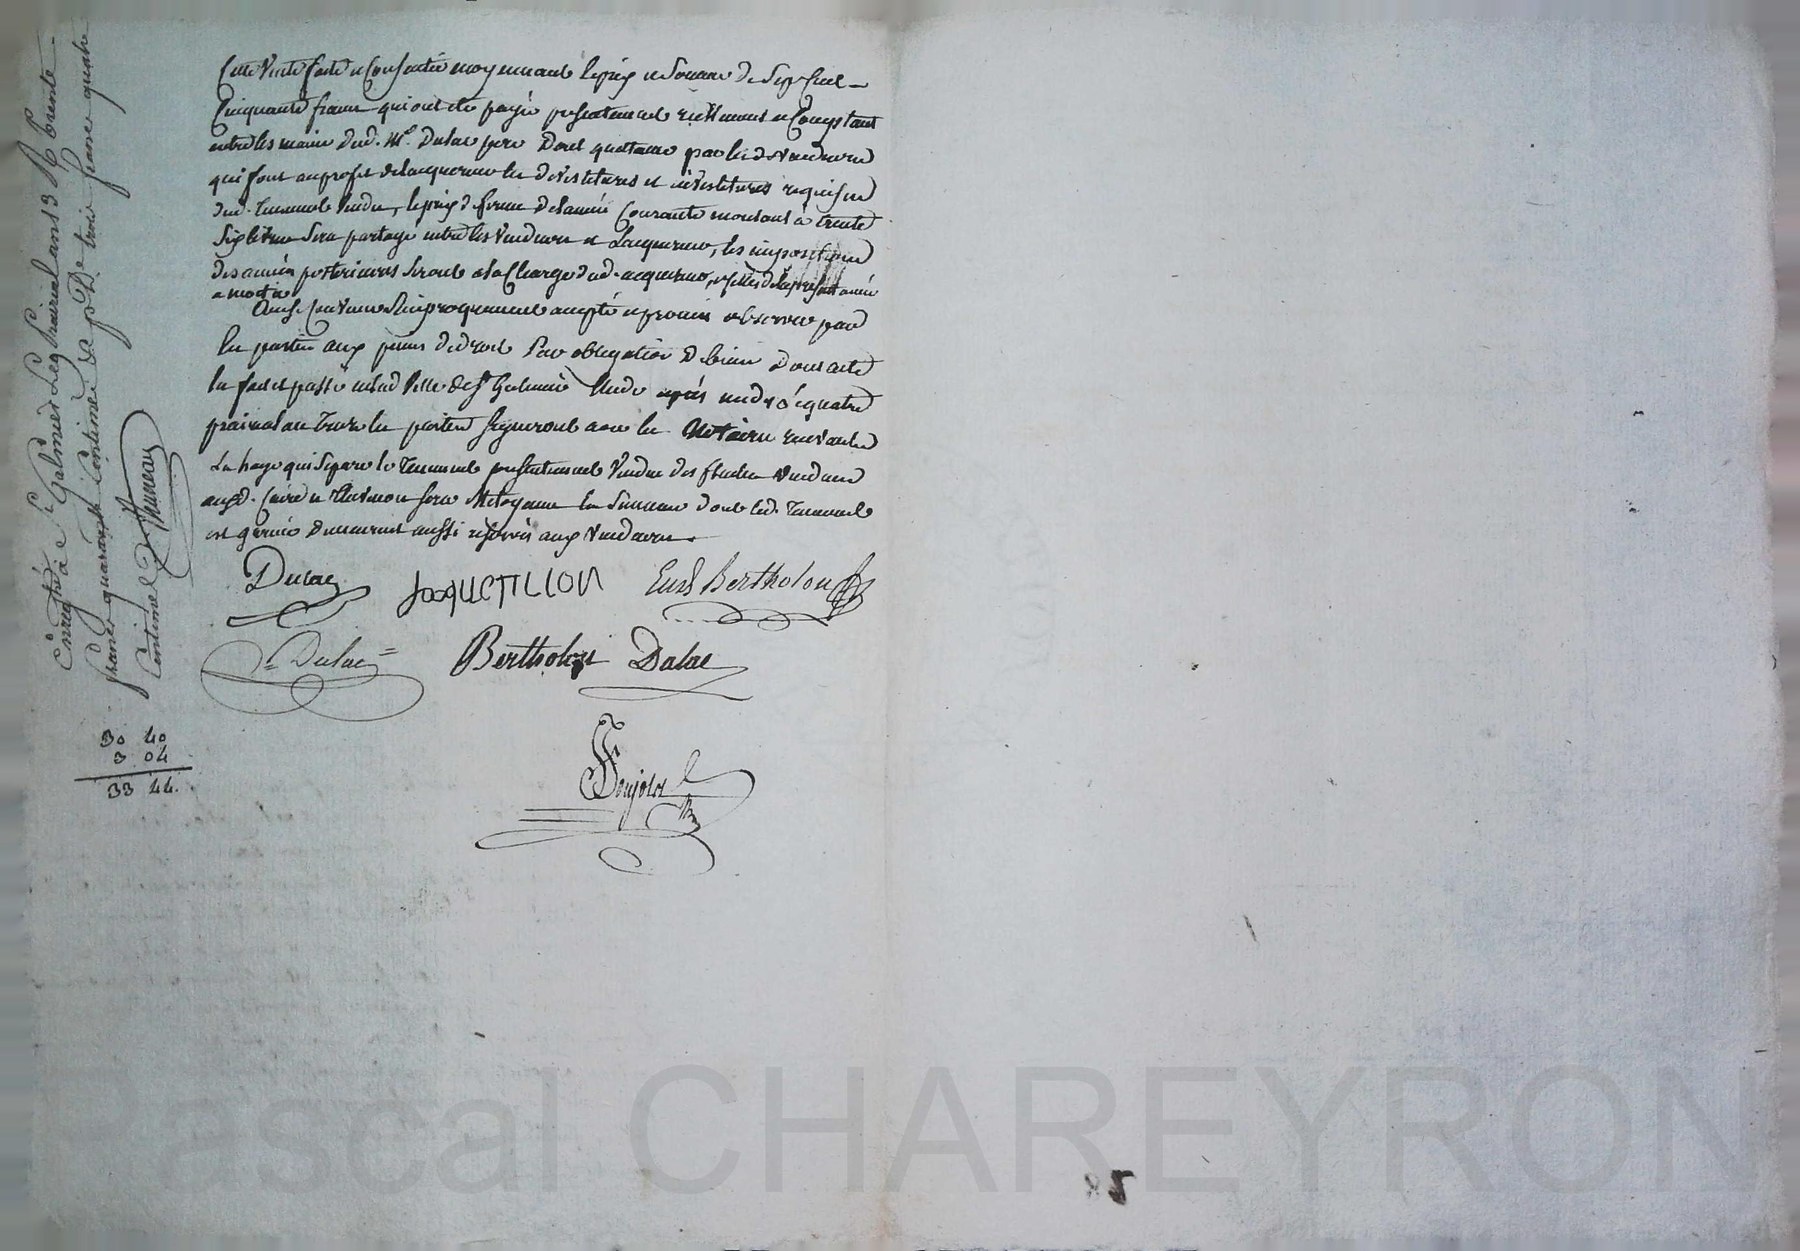 Cette Vente faite et Consentie moyennant le prix et Somme de Sept Cent
Cinquante francs qui ont ete payé presentement reellement et Comptant
entre les mains dud. Mr. Dulac pere Dont quittance par les d. Vendeurs
qui font au profit de lacquereur les devestitures et investitures requises
dud. tenement Vendu, le prix de ferme de lannée Courante montant à trente
Six livres Sera partagé entre les Vendeurs et Lacquereur, les impositions
des années posterieures Seront a la Charge dud. acquereur, et celles de la presente année
a moitié
Ainsi Convenu Reciproquement accepté et promis observer par
les parties aux peines de droit Par obligation De biens Dont acte
lu fait et passé en lad Ville de St Galmier Etude après midi le quatre
prairial an treize les parties Signeront avec les Notaires
La haye qui Separe le tenement presentement Vendu des Vendeurs
auxd. et Sera Mitoyenne la dont led. tenement
est demeurent aussi reservés aux Vendeurs.
Dulac JacqueTILLON Bertholon
Dulac Bertholon Dulac
Poujolat
Enregistré à St Galmier Le 9 Prairial an 13 R. trente
francs quarante Centimes Sa pr De trois francs quatre
Centimes Thuneau
30 40
3 04
33 44
85
Pascal CHAREYRON